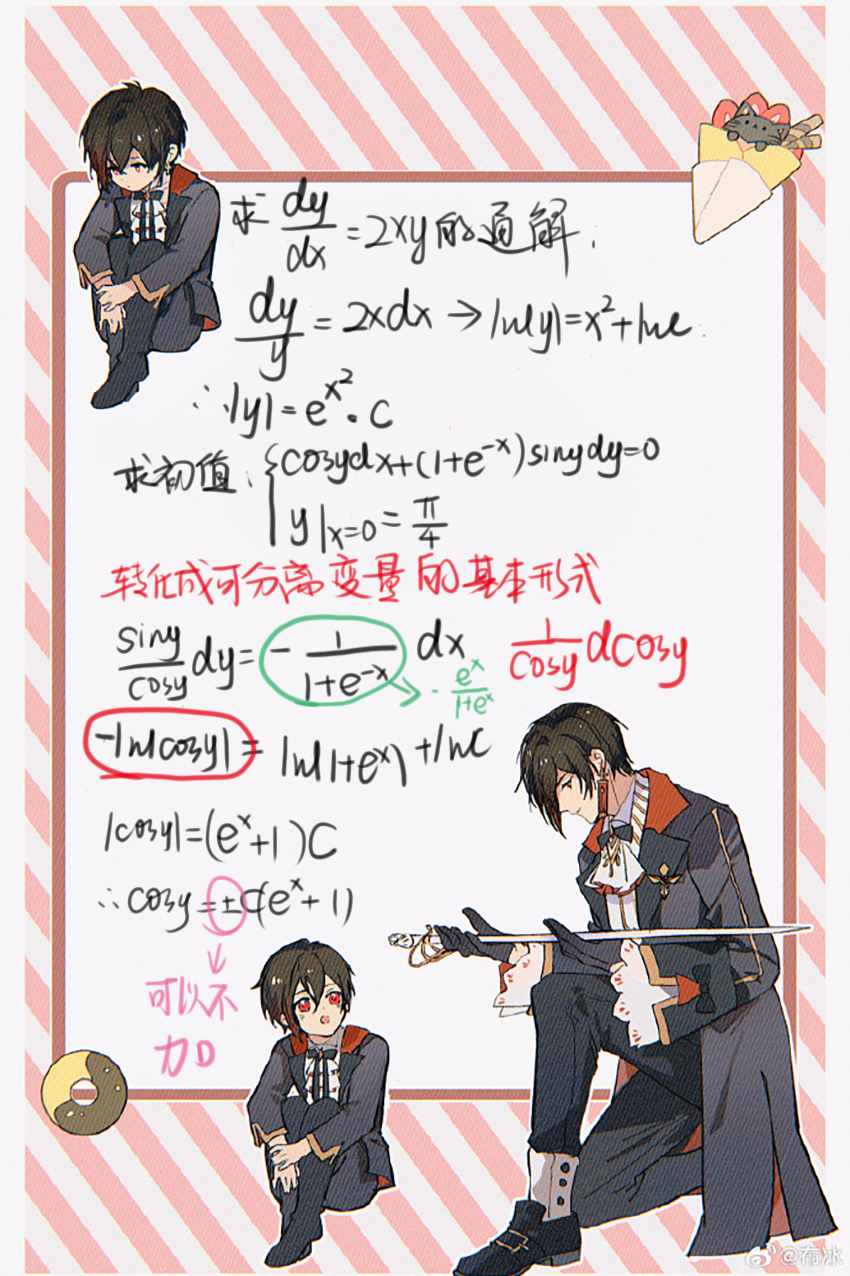 求 dy/dx = 2xy 的通解.
dy/y = 2xdx → ln|y| = x² + lnc.
∴ |y| = e^x² · C
求初值: { cosydx + (1+e^-x) siny dy = 0
y|x=0 = π/4
转化成可分离变量的基本形式
siny/cosy dy = - 1/(1+e^-x) dx 1/cosy dcosy
- e^x/(1+e^x)
-ln|cosy| = ln|1+e^x| + lnC
|cosy| = (e^x+1)C
∴ cosy = ±C(e^x+1)
↓
可以不
加
@布冰